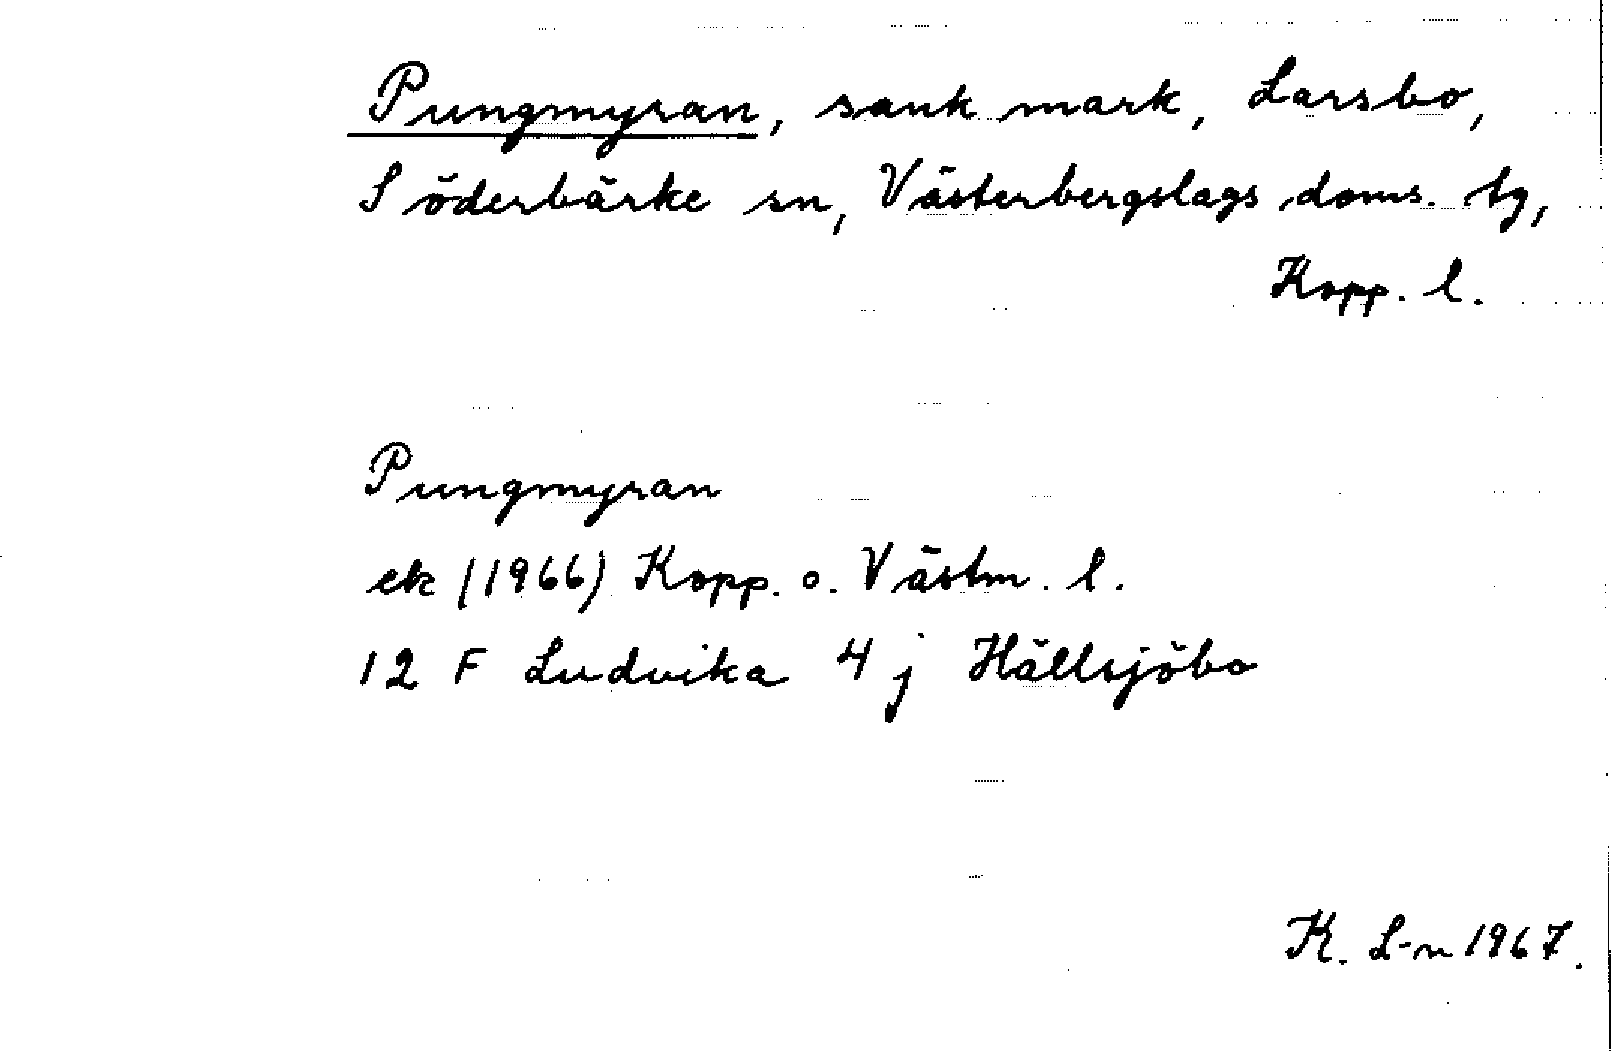 Pungmyran, sank mark, Larsbo,
Söderbärke sn, Västerbergslags doms. tg,
Kopp. l.
Pungmyran
ek (1966) Kopp. o. Västm. l.
12 F Ludvika 4 j Hällsjöbo
K. L-n 1967.